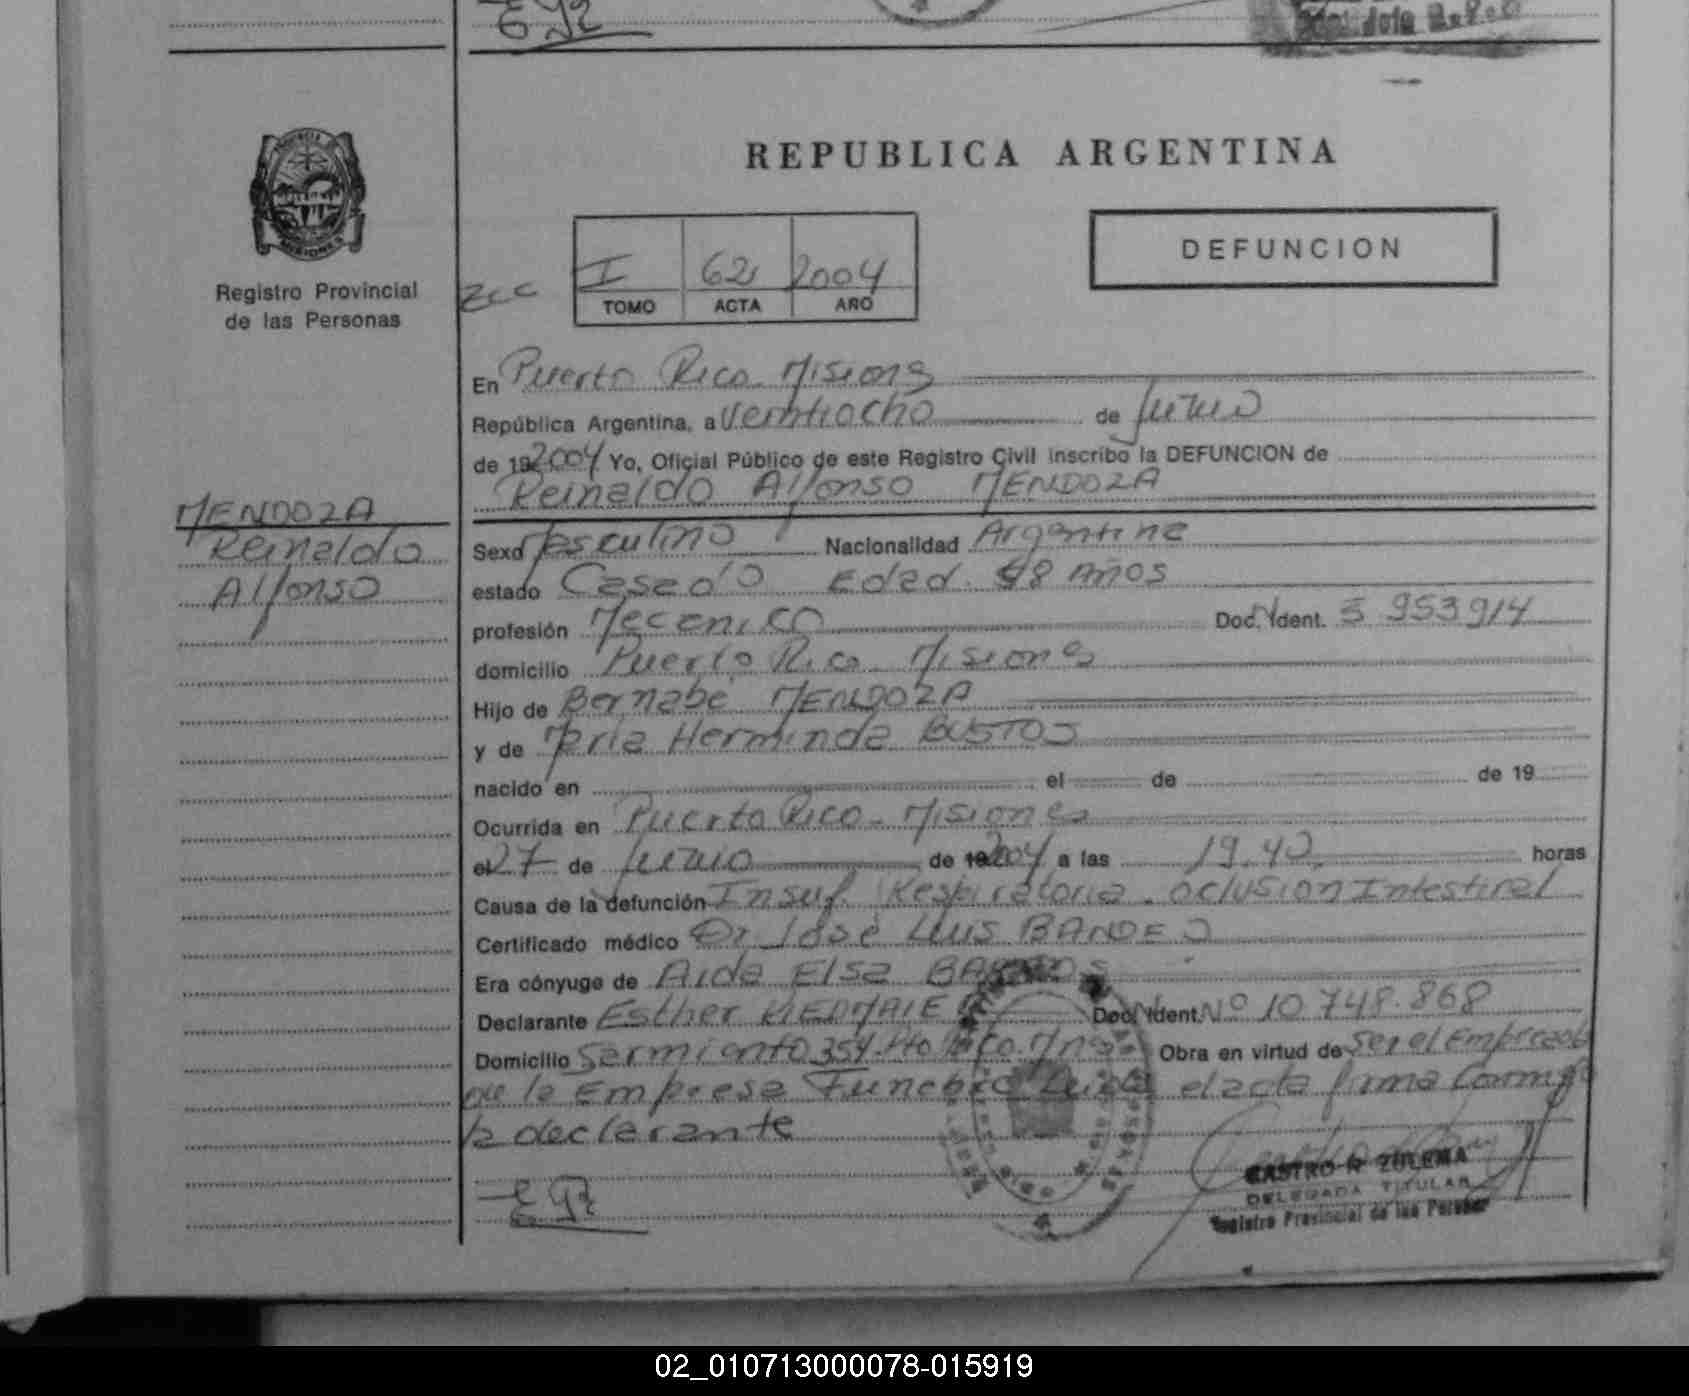 REPUBLICA ARGENTINA
DEFUNCION
I 62 2004
TOMO ACTA AÑO
Registro Provincial
de las Personas
En Puerto Rico Misiones
República Argentina, a veintiocho de Junio
de 192004 Yo, Oficial Público de este Registro Civil inscribo la DEFUNCION de
Reinaldo Alfonso MENDOZA
MENDOZA
Reinaldo
Alfonso
Sexo Masculino Nacionalidad Argentina
estado Casado Edad 58 AÑOS
profesión Mecanico Doc. Ident. 5 953914
domicilio Puerto Rico Misiones
Hijo de Bernabé MENDOZA
y de María Herminda BUSTOS
nacido en el de de 19
Ocurrida en Puerto Rico - Misiones
el 27 de Junio de 192004 a las 19.40 horas
Causa de la defunción Insuf. Respiratoria - oclusion Intestinal
Certificado médico Dr José Luis BANDEO
Era cónyuge de Aida Elsa
Declarante Esther Doc. Ident. Nº 10 748.868
Domicilio Sarmiento 354 Pto Rico Mnes Obra en virtud de ser el Empleado
de la Empresa Funebre el acta firma Conmigo
la declarante
CASTRO R ZULEMA
DELEGADA TITULAR
Registro Provincial de las Personas
02_010713000078-015919